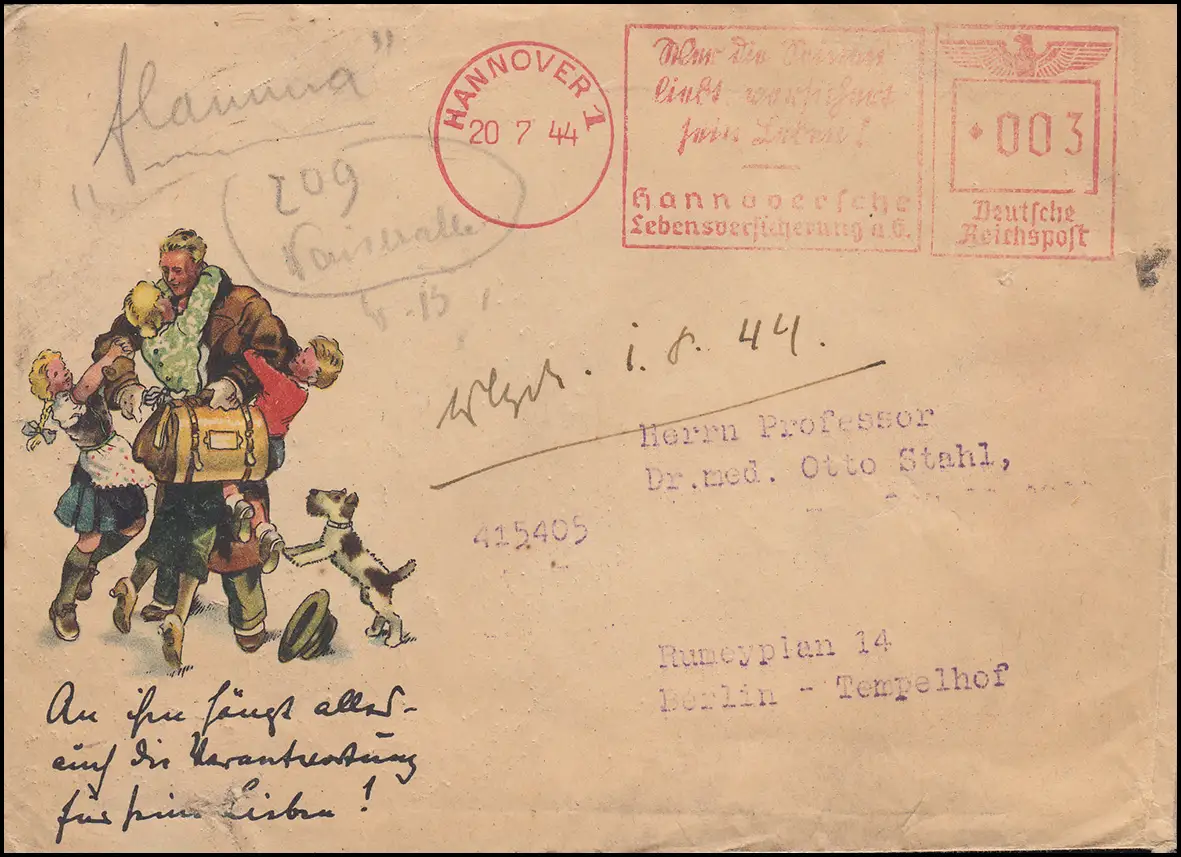 HANNOVER 1
20 7 44
Wer die Seinen
liebt versichert
sein Leben!
Hannoversche
Lebensversicherung a.G.
003
Deutsche
Reichspost
209
i. 8. 44.
Herrn Professor
Dr.med. Otto Stahl,
415405
Rumeyplan 14
Berlin - Tempelhof
An ihm hängt alles -
auch die Verantwortung
für seine Lieben!